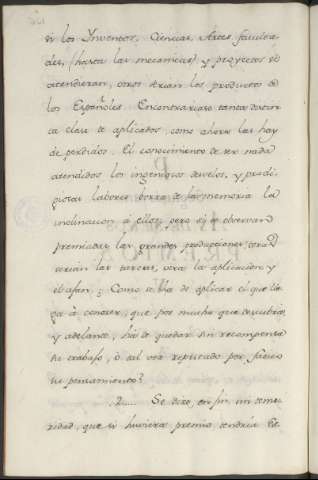 si los Ynventos, Ciencias, Artes, faculta
des, (hasta las mecanicas) y proyectos se
atendieran, otros serian los productos de
los Españoles. Encontrariase tanta distin
ta clase de aplicados, como ahora las hay
de perdidos. El conocimiento de ser nada
atendidos los ingeniosos desvelos, y prodi
giosas labores borra de la memoria la
inclinacion à ellos; pero si se observaran
premiadas las grandes producciones, otras
serian las tareas, otra la aplicacion y
el afan. ¿Como se ha de aplicar el que lle
ga à conocer, que por mucho que descubra
y adelante, ha de quedar sin recompensa
su trabajo, ò tal vez reputado por
su pensamiento?
2..... Se dize, en fin, un teme
ridad, que si huviera premio tendria Es